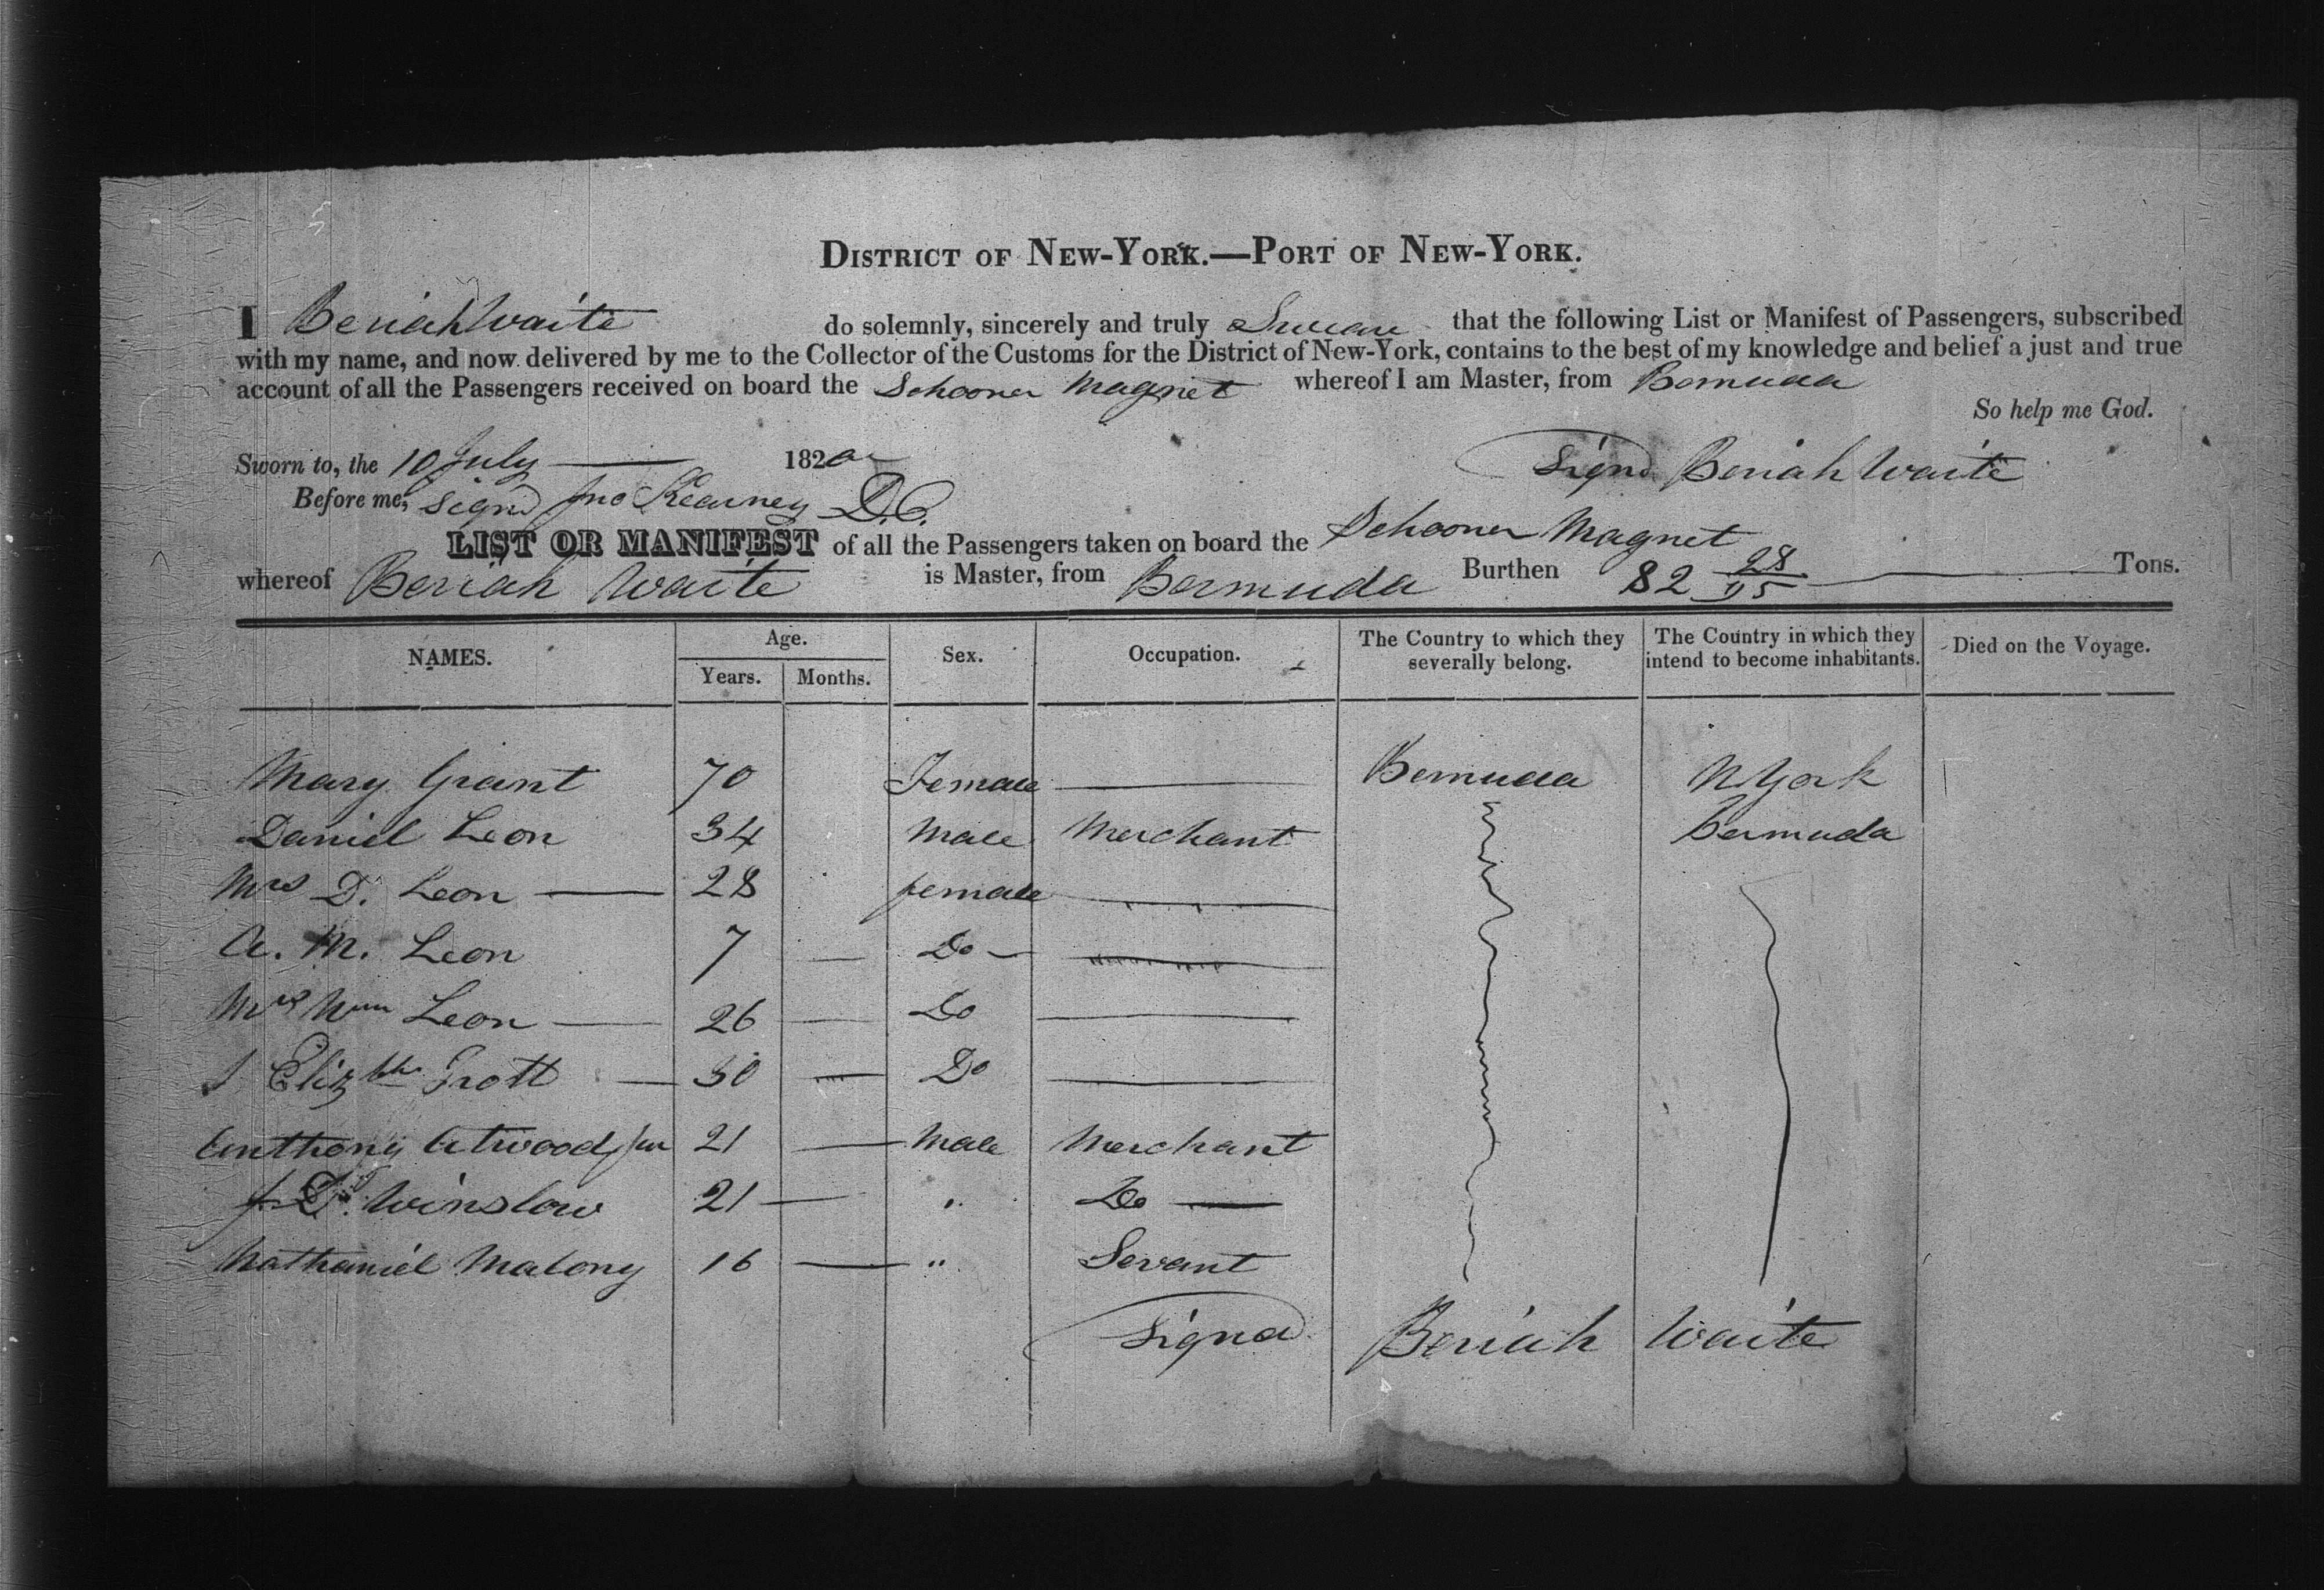 DISTRICT OF NEW-YORK.—PORT OF NEW-YORK.
I Beriah Waite do solemnly, sincerely and truly Swear that the following List or Manifest of Passengers, subscribed
with my name, and now delivered by me to the Collector of the Customs for the District of New-York, contains to the best of my knowledge and belief a just and true
account of all the Passengers received on board the Schooner Magnet whereof I am Master, from Bermuda
So help me God.
Sworn to, the 10 July 1820 Signd Beriah Waite
Before me, Signd Jno Kearney D.C.
LIST OR MANIFEST of all the Passengers taken on board the Schooner Magnet
whereof Beriah Waite is Master, from Bermuda Burthen 82 28/95 Tons.
NAMES. Age. Years. Months. Sex. Occupation. The Country to which they severally belong. The Country in which they intend to become inhabitants. Died on the Voyage.
Mary Grant 70 Female — Bermuda N York
Daniel Leon 34 Male Merchant Bermuda
Mrs D. Leon — 28 female —
A. M. Leon 7 — Do — —
Mrs Wm Leon — 26 — Do —
Elizbth Trott — 30 — Do —
Anthony Atwood Jur 21 — Male Merchant
J. D. Winslow 21 — " Do —
Nathaniel Malony 16 — " Servant
Signd Beriah Waite